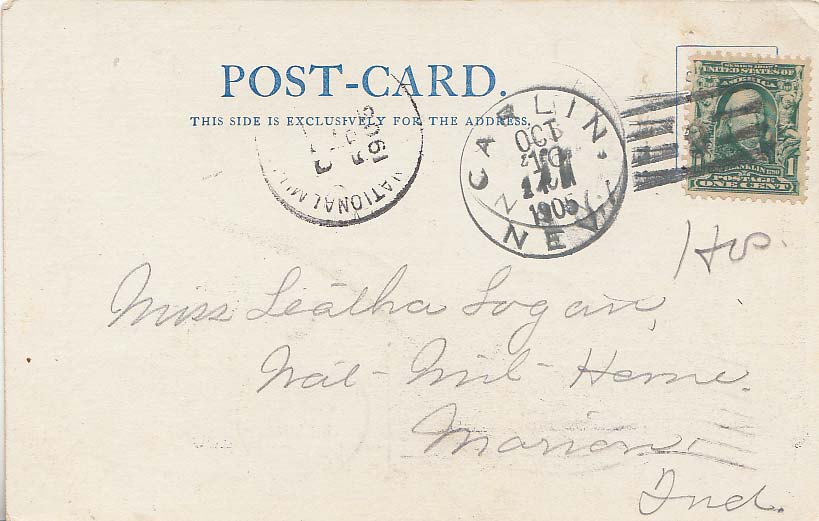 POST-CARD.
THIS SIDE IS EXCLUSIVELY FOR THE ADDRESS.
CARLIN,
NEV.
OCT
10
1905
NATIONAL MIL
1905
SERIES 1902
UNITED STATES OF
AMERICA
FRANKLIN
POSTAGE
1 ONE CENT 1
Miss Leatha Logan,
Nat- Mil- Home.
Marion,
Ind.